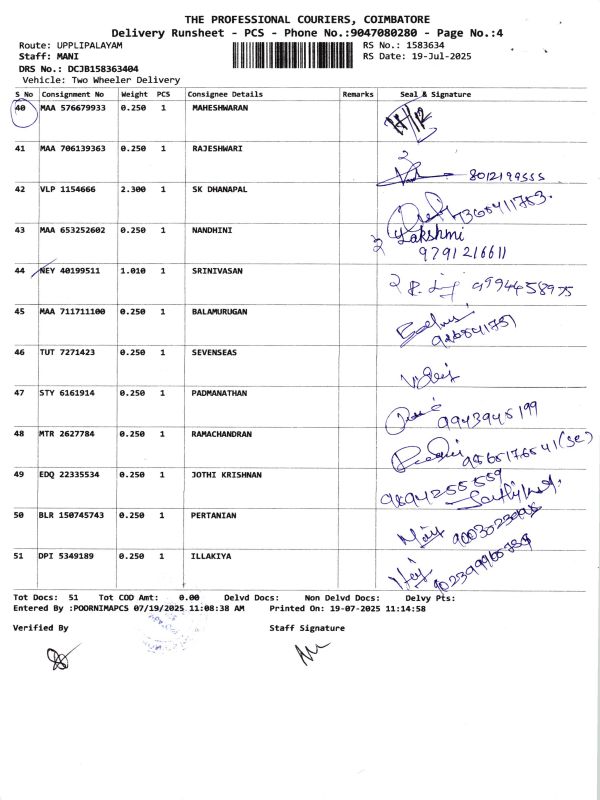 THE PROFESSIONAL COURIERS, COIMBATORE
Delivery Runsheet - PCS - Phone No.:9047080280 - Page No.:4
Route: UPPLIPALAYAM RS No.: 1583634
Staff: MANI RS Date: 19-Jul-2025
DRS No.: DCJB158363404
Vehicle: Two Wheeler Delivery
S No Consignment No Weight PCS Consignee Details Remarks Seal & Signature
40 MAA 576679933 0.250 1 MAHESHWARAN
41 MAA 706139363 0.250 1 RAJESHWARI
8012199555
42 VLP 1154666 2.300 1 SK DHANAPAL
7305411753.
43 MAA 653252602 0.250 1 NANDHINI Lakshmi
9791216611
44 NEY 40199511 1.010 1 SRINIVASAN
9994458975
45 MAA 711711100 0.250 1 BALAMURUGAN
46 TUT 7271423 0.250 1 SEVENSEAS
47 STY 6161914 0.250 1 PADMANATHAN
9943945199
48 MTR 2627784 0.250 1 RAMACHANDRAN
49 EDQ 22335534 0.250 1 JOTHI KRISHNAN
9894255559
50 BLR 150745743 0.250 1 PERTANIAN
51 DPI 5349189 0.250 1 ILLAKIYA
Tot Docs: 51 Tot COD Amt: 0.00 Delvd Docs: Non Delvd Docs: Delvy Pts:
Entered By :POORNIMAPCS 07/19/2025 11:08:38 AM Printed On: 19-07-2025 11:14:58
Verified By Staff Signature